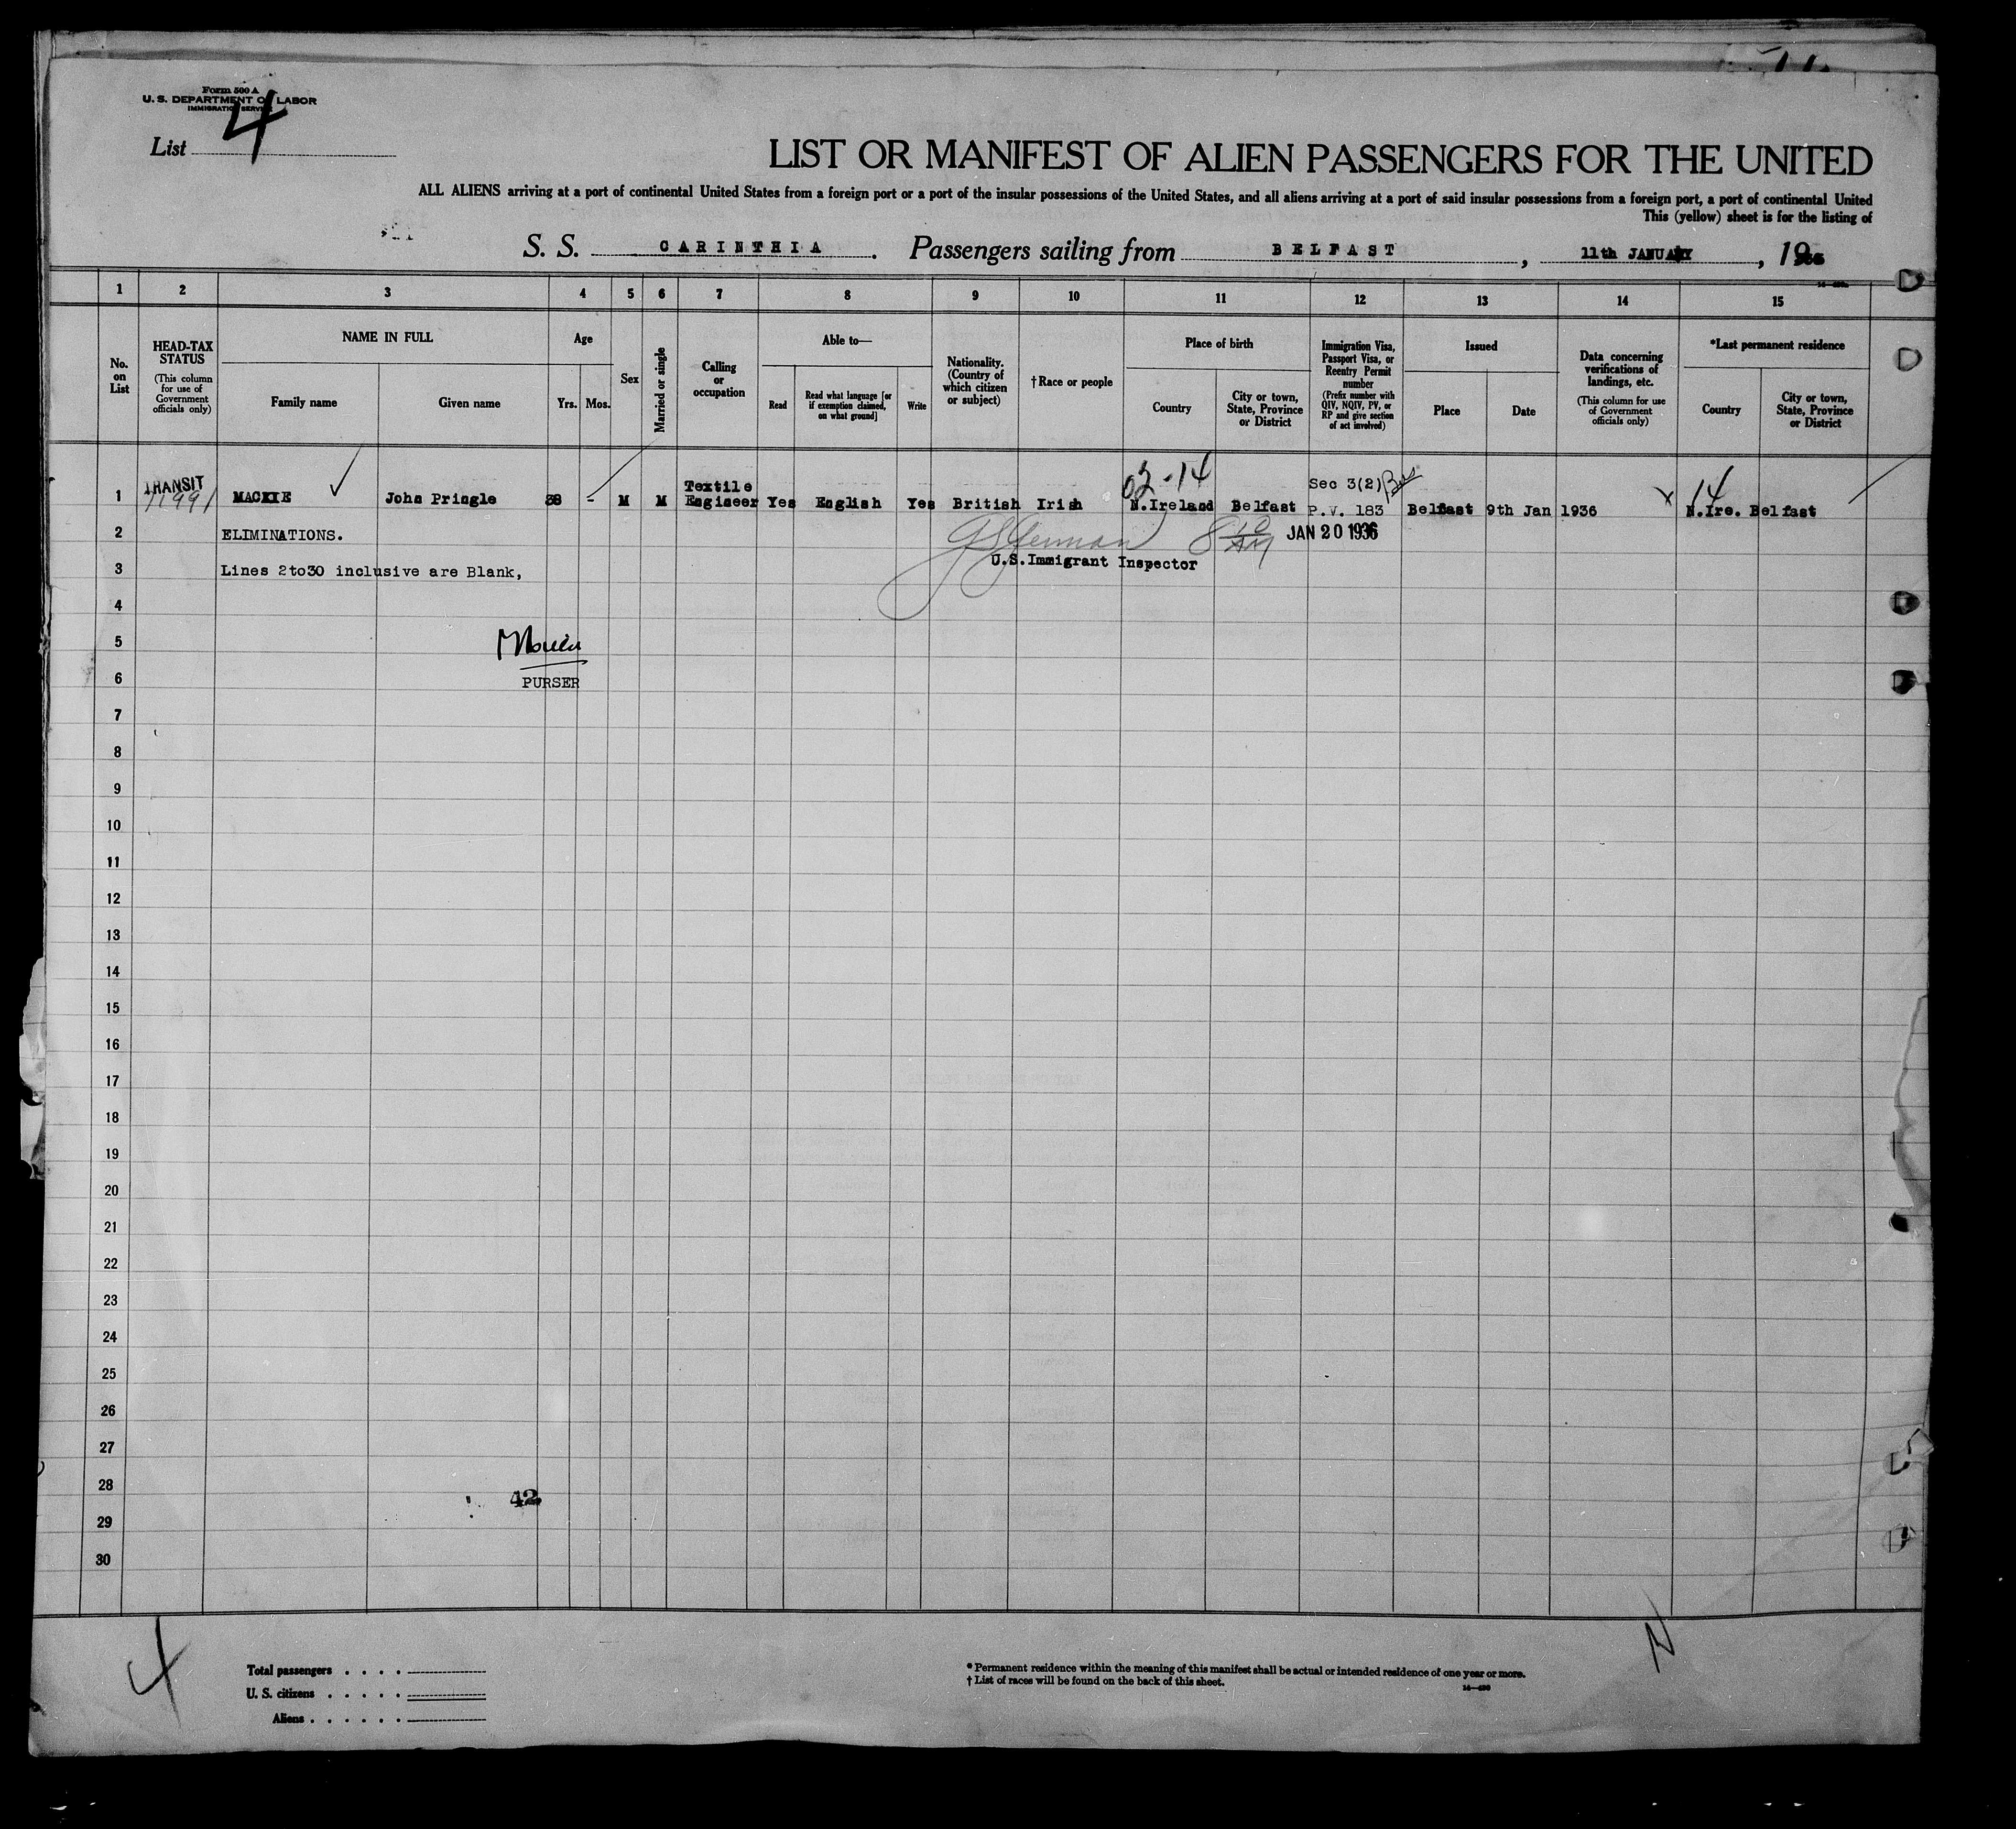 Form 500 A
U. S. DEPARTMENT OF LABOR
IMMIGRATION SERVICE
List 4
LIST OR MANIFEST OF ALIEN PASSENGERS FOR THE UNITED
ALL ALIENS arriving at a port of continental United States from a foreign port or a port of the insular possessions of the United States, and all aliens arriving at a port of said insular possessions from a foreign port, a port of continental United
This (yellow) sheet is for the listing of
S. S. CARINTHIA. Passengers sailing from BELFAST, 11th JANUARY, 19
1 2 3 4 5 6 7 8 9 10 11 12 13 14 15
No. on List
HEAD-TAX STATUS
(This column for use of Government officials only)
NAME IN FULL
Family name
Given name
Age
Yrs. Mos.
Sex
Married or single
Calling or occupation
Able to—
Read
Read what language [or if exemption claimed, on what ground]
Write
Nationality. (Country of which citizen or subject)
†Race or people
Place of birth
Country
City or town, State, Province or District
Immigration Visa, Passport Visa, or Reentry Permit number
(Prefix number with QIV, NQIV, PV, or RP and give section of act involved)
Issued
Place
Date
Data concerning verifications of landings, etc.
(This column for use of Government officials only)
*Last permanent residence
Country
City or town, State, Province or District
02-14
14
TRANSIT
11991
1 MACKIE John Pringle 38 - M M Textile Engineer Yes English Yes British Irish N.Ireland Belfast Sec 3(2) P.V. 183 Belfast 9th Jan 1936 x N.Ire. Belfast
2 ELIMINATIONS. 8 10 AM JAN 20 1936
3 Lines 2to30 inclusive are Blank, U.S.Immigrant Inspector
4
5
6 PURSER
7
8
9
10
11
12
13
14
15
16
17
18
19
20
21
22
23
24
25
26
27
28 42
29
30
4
N
Total passengers . . . .
U. S. citizens . . . . .
Aliens . . . . . .
* Permanent residence within the meaning of this manifest shall be actual or intended residence of one year or more.
† List of races will be found on the back of this sheet.